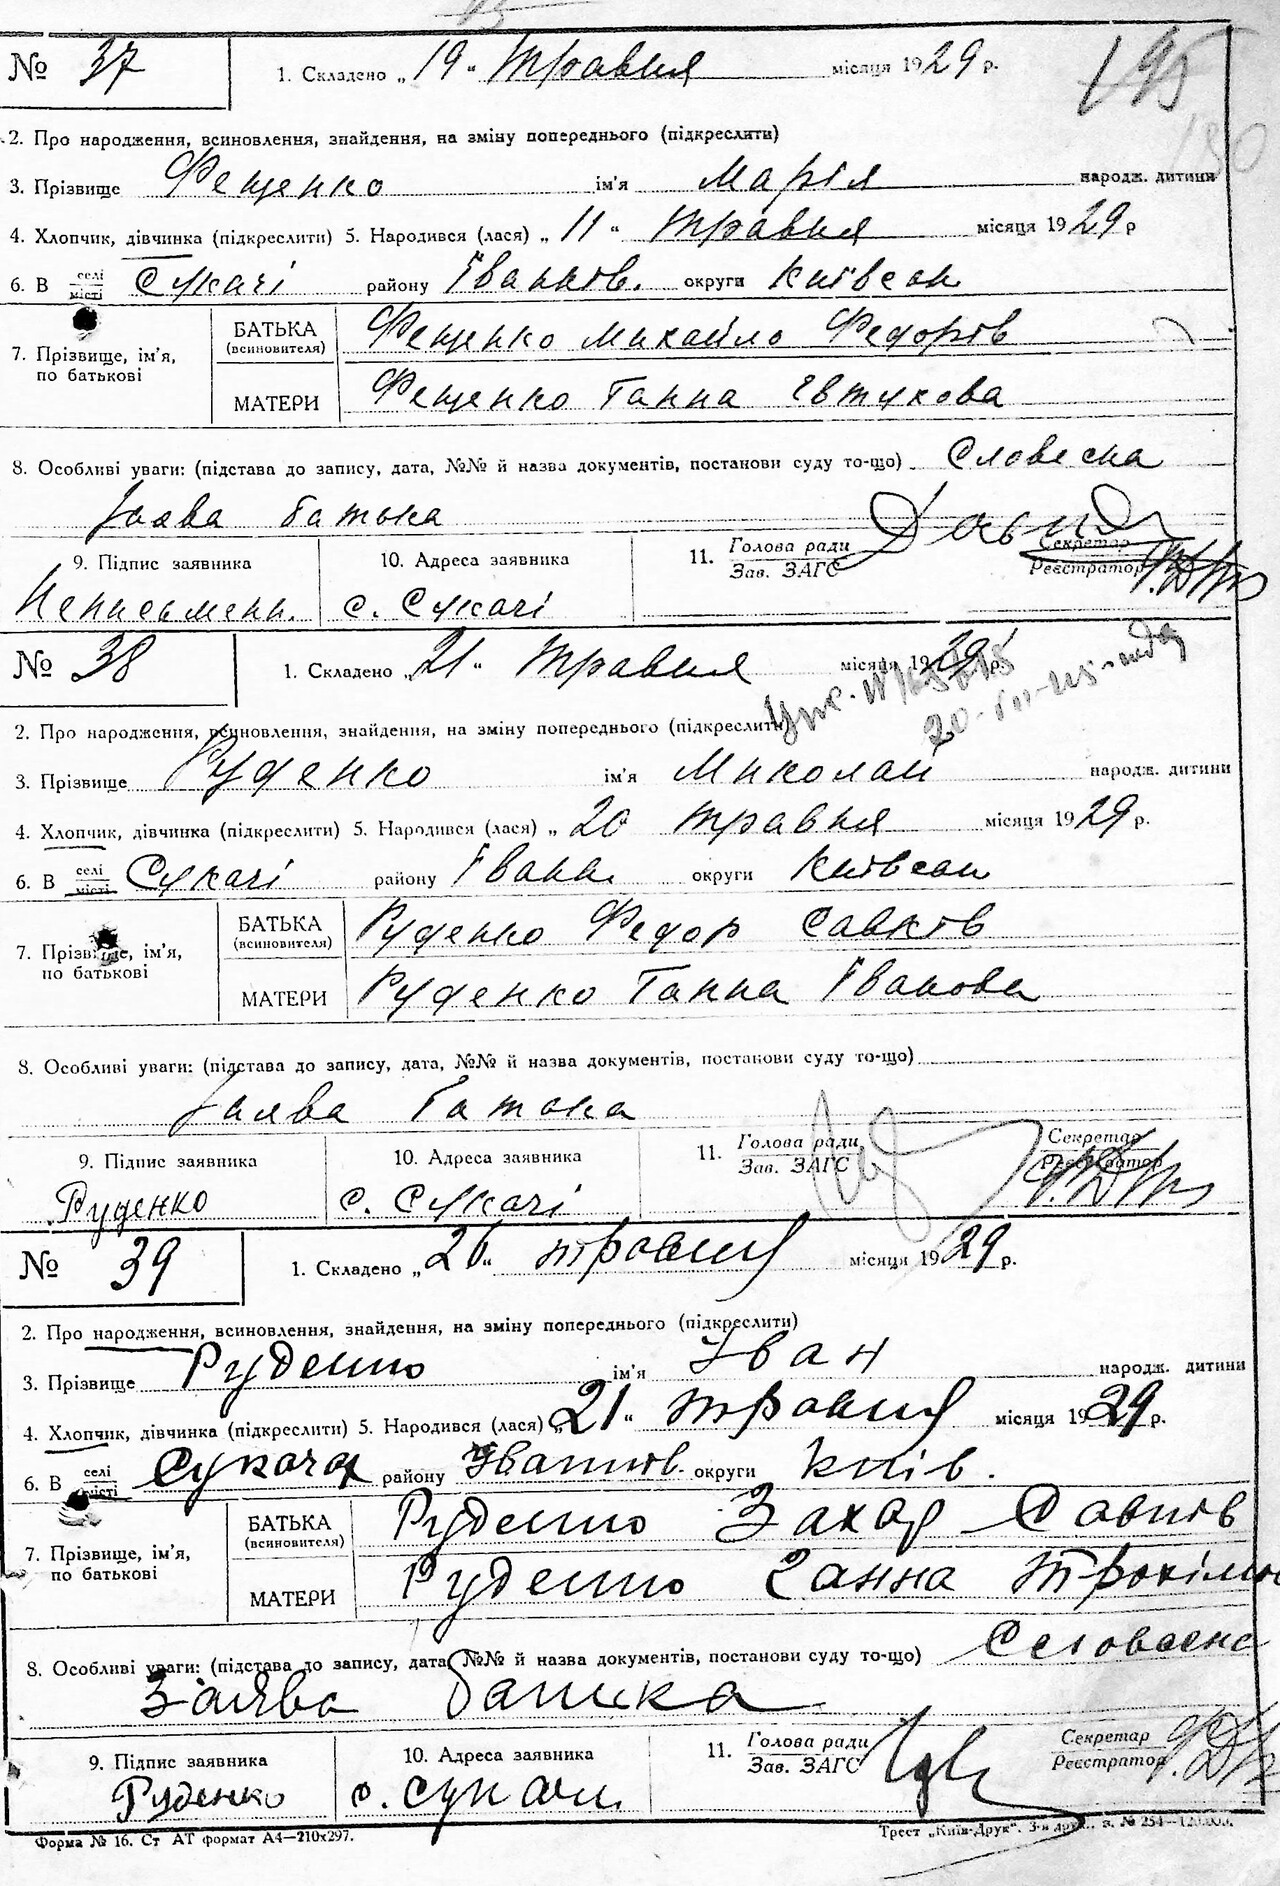 195
№ 37 1. Складено „19“ травня місяця 1929 р.
2. Про народження, всиновлення, знайдення, на зміну попереднього (підкреслити)
3. Прізвище Фещенко ім'я Марія народж. дитини
4. Хлопчик, дівчинка (підкреслити) 5. Народився (лася) „11“ травня місяця 1929 р
6. В селі місті Сукачі району Іванків. округи Київськ
7. Прізвище, ім'я, по батькові
БАТЬКА (всиновителя) Фещенко Михайло Федорів
МАТЕРИ Фещенко Ганна Євтухова
8. Особливі уваги: (підстава до запису, дата, №№ й назва документів, постанови суду то-що) Словесна
заява батька
9. Підпис заявника 10. Адреса заявника 11. Голова ради Зав. ЗАГС Секретар Реєстратор
Неписьменн. с. Сукачі
№ 38 1. Складено „21“ травня місяця 1929 р.
2. Про народження, всиновлення, знайдення, на зміну попереднього (підкреслити)
3. Прізвище Руденко ім'я Миколай народж. дитини
4. Хлопчик, дівчинка (підкреслити) 5. Народився (лася) „20 травня місяця 1929 р.
6. В селі місті Сукачі району Іванк. округи Київськ
7. Прізвище, ім'я, по батькові
БАТЬКА (всиновителя) Руденко Федор Савків
МАТЕРИ Руденко Ганна Іванова
8. Особливі уваги: (підстава до запису, дата, №№ й назва документів, постанови суду то-що)
заява батька
9. Підпис заявника 10. Адреса заявника 11. Голова ради Зав. ЗАГС Секретар Реєстратор
Руденко с. Сукачі
№ 39 1. Складено „26“ травня місяця 1929 р.
2. Про народження, всиновлення, знайдення, на зміну попереднього (підкреслити)
3. Прізвище Руденко ім'я Іван народж. дитини
4. Хлопчик, дівчинка (підкреслити) 5. Народився (лася) „21“ травня місяця 1929 р.
6. В селі місті Сукачах району Іванків. округи Київ.
7. Прізвище, ім'я, по батькові
БАТЬКА (всиновителя) Руденко Захар Савків
МАТЕРИ Руденко Ганна
8. Особливі уваги: (підстава до запису, дата, №№ й назва документів, постанови суду то-що) Словесна
Заява батька
9. Підпис заявника 10. Адреса заявника 11. Голова ради Зав. ЗАГС Секретар Реєстратор
Руденко с. Сукачі
Форма № 16. Ст АТ формат А4—210х297. Трест „Київ-Друк“. 3-я друк. з. № 254—